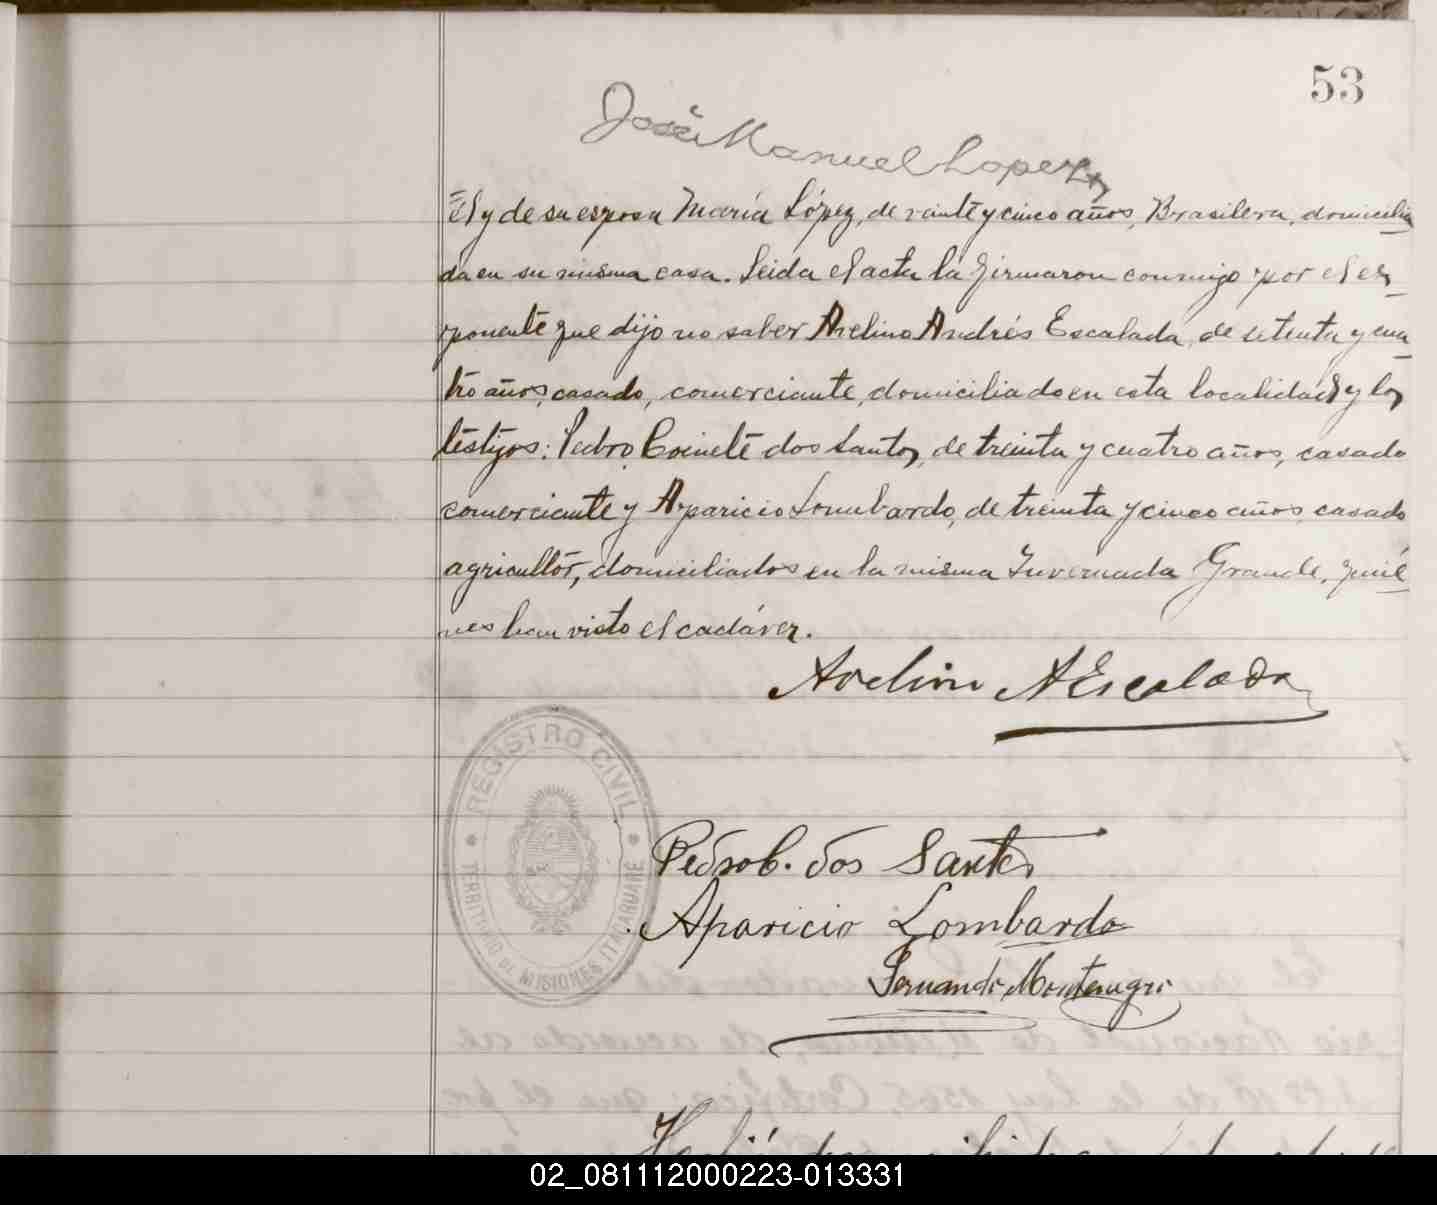 53
José Manuel Lopez
El y de su esposa María López, de veinte y cinco años, Brasilera, domicilia
da en su misma casa. Leida el acta la firmaron conmigo por el es_
ponente que dijo no saber Avelino Andrés Escalada, de setenta y cua_
tro años, casado, comerciante, domiciliado en esta localidad y los
testigos: Pedro dos Santos, de treinta y cuatro años, casado
comerciante y Aparicio Lombardo, de treinta y cinco años casado
agricultor, domiciliados en la misma Invernada Grande, quié_
nes han visto el cadáver.
Avelino A Escalada
REGISTRO CIVIL
TERRITORIO DE MISIONES ITACARUARE
Pedro C. dos Santos
Aparicio Lombardo
Fernando Montenegro
02_081112000223-013331